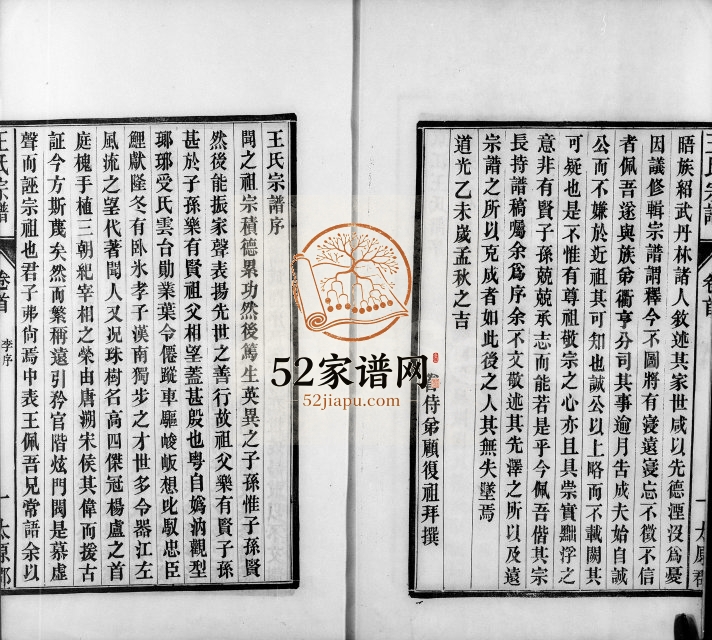 晤族紹武丹林諸人敘述其家世咸以先德湮沒為憂
因議修輯宗譜謂釋今不圖將有寖遠寖忘不徵不信
者佩吾遂與族弟衢亨分司其事逾月告成夫始自誠
公而不嫌於近祖其可知也誠公以上略而不載闕其
可疑也是不惟有尊祖敬宗之心亦且具崇實黜浮之
意非有賢子孫兢兢承志而能若是乎今佩吾偕其宗
長持譜稿囑余為序余不文敬述其先澤之所以及遠
宗譜之所以克成者如此後之人其無失墜焉
道光乙未歲孟秋之吉
侍弟顧復祖拜撰
王氏宗譜
卷首
一
太原郡
王氏宗譜序
聞之祖宗積德累功然後篤生英異之子孫惟子孫賢
然後能振家聲表揚先世之善行故祖父樂有賢子孫
甚於子孫樂有賢祖父相望蓋甚殷也粵自媯汭觀型
瑯琊受氏雲台勛業葉令僊蹤車驅峻岅想叱馭忠臣
鯉獻隆冬有卧氷孝子漢南獨步之才世多令器江左
風流之望代著聞人又况珠樹名高四傑冠楊盧之首
庭槐手植三朝紀宰相之榮由唐溯宋侯其偉而援古
証今方斯蔑矣然而繁稱遠引矜官階炫門閥是慕虛
聲而誣宗祖也君子弗尙焉中表王佩吾兄常語余以
王氏宗譜
卷首
李序
一
太原郡
52家谱网
52jiapu.com